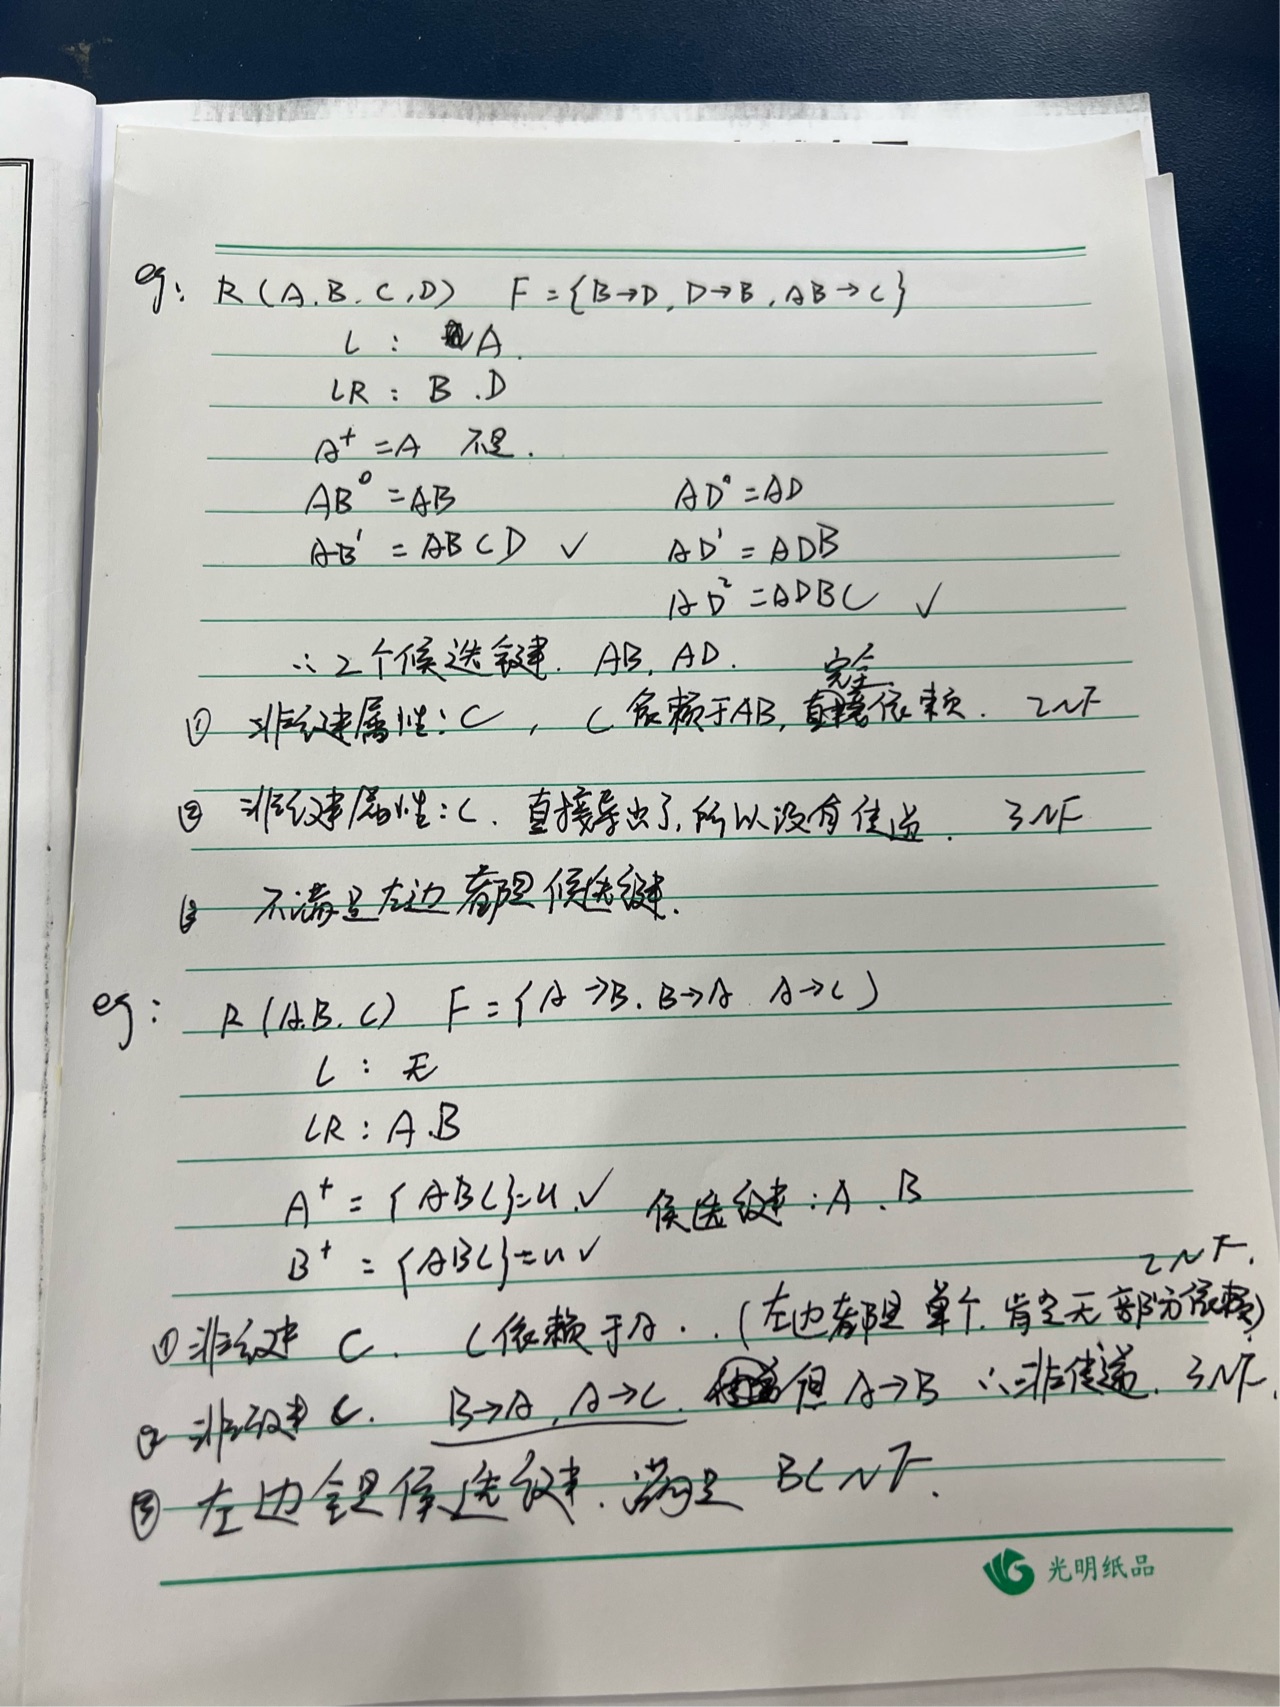 eg: R(A.B.C,D) F={B→D,D→B,AB→C}
L: A.
LR: B.D
A⁺=A 不是.
AB⁰=AB AD⁰=AD
AB¹=ABCD ✓ AD¹=ADB
AD²=ADBC ✓
∴2个候选键. AB, AD.
完全
① 非键属性:C, C依赖于AB, 依赖. 2NF
② 非键属性:C. 直接导出了,所以没有传递. 3NF
③ 不满足左边都是候选键.
eg: R(A.B.C) F={A→B. B→A A→C}
L: 无
LR: A.B
A⁺={ABC}=U.✓ 候选键:A.B
B⁺={ABC}=U✓
2NF.
①非键 C. C依赖于A..(左边都是单个.肯定无部分依赖)
② 非键 C. B→A, A→C. 但 A→B ∴非传递. 3NF.
③ 左边全是候选键. 满足 BCNF.
光明纸品